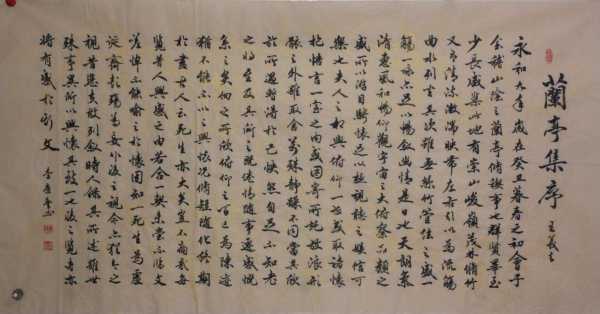 蘭亭集序 王羲之
永和九年歲在癸丑暮春之初會于
會稽山陰之蘭亭脩稧事也群賢畢至
少長咸集此地有崇山峻嶺茂林脩竹
又有清流激湍映帶左右引以為流觴
曲水列坐其次雖無絲竹管弦之盛一
觴一詠亦足以暢敘幽情是日也天朗氣
清惠風和暢仰觀宇宙之大俯察品類之
盛所以遊目騁懷足以極視聽之娛信可
樂也夫人之相與俯仰一世或取諸懷
抱悟言一室之內或因寄所託放浪形
骸之外雖取舍萬殊靜躁不同當其欣
於所遇暫得於己快然自足不知老
之將至及其所之既倦情隨事遷感慨
係之矣向之所欣俯仰之間已為陳迹
猶不能不以之興懷況脩短隨化終期
於盡古人云死生亦大矣豈不痛哉每
覽昔人興感之由若合一契未嘗不臨文
嗟悼不能喻之於懷固知一死生為虛
誕齊彭殤為妄作後之視今亦猶今之
視昔悲夫故列敘時人錄其所述雖世
殊事異所以興懷其致一也後之覽者亦
將有感於斯文